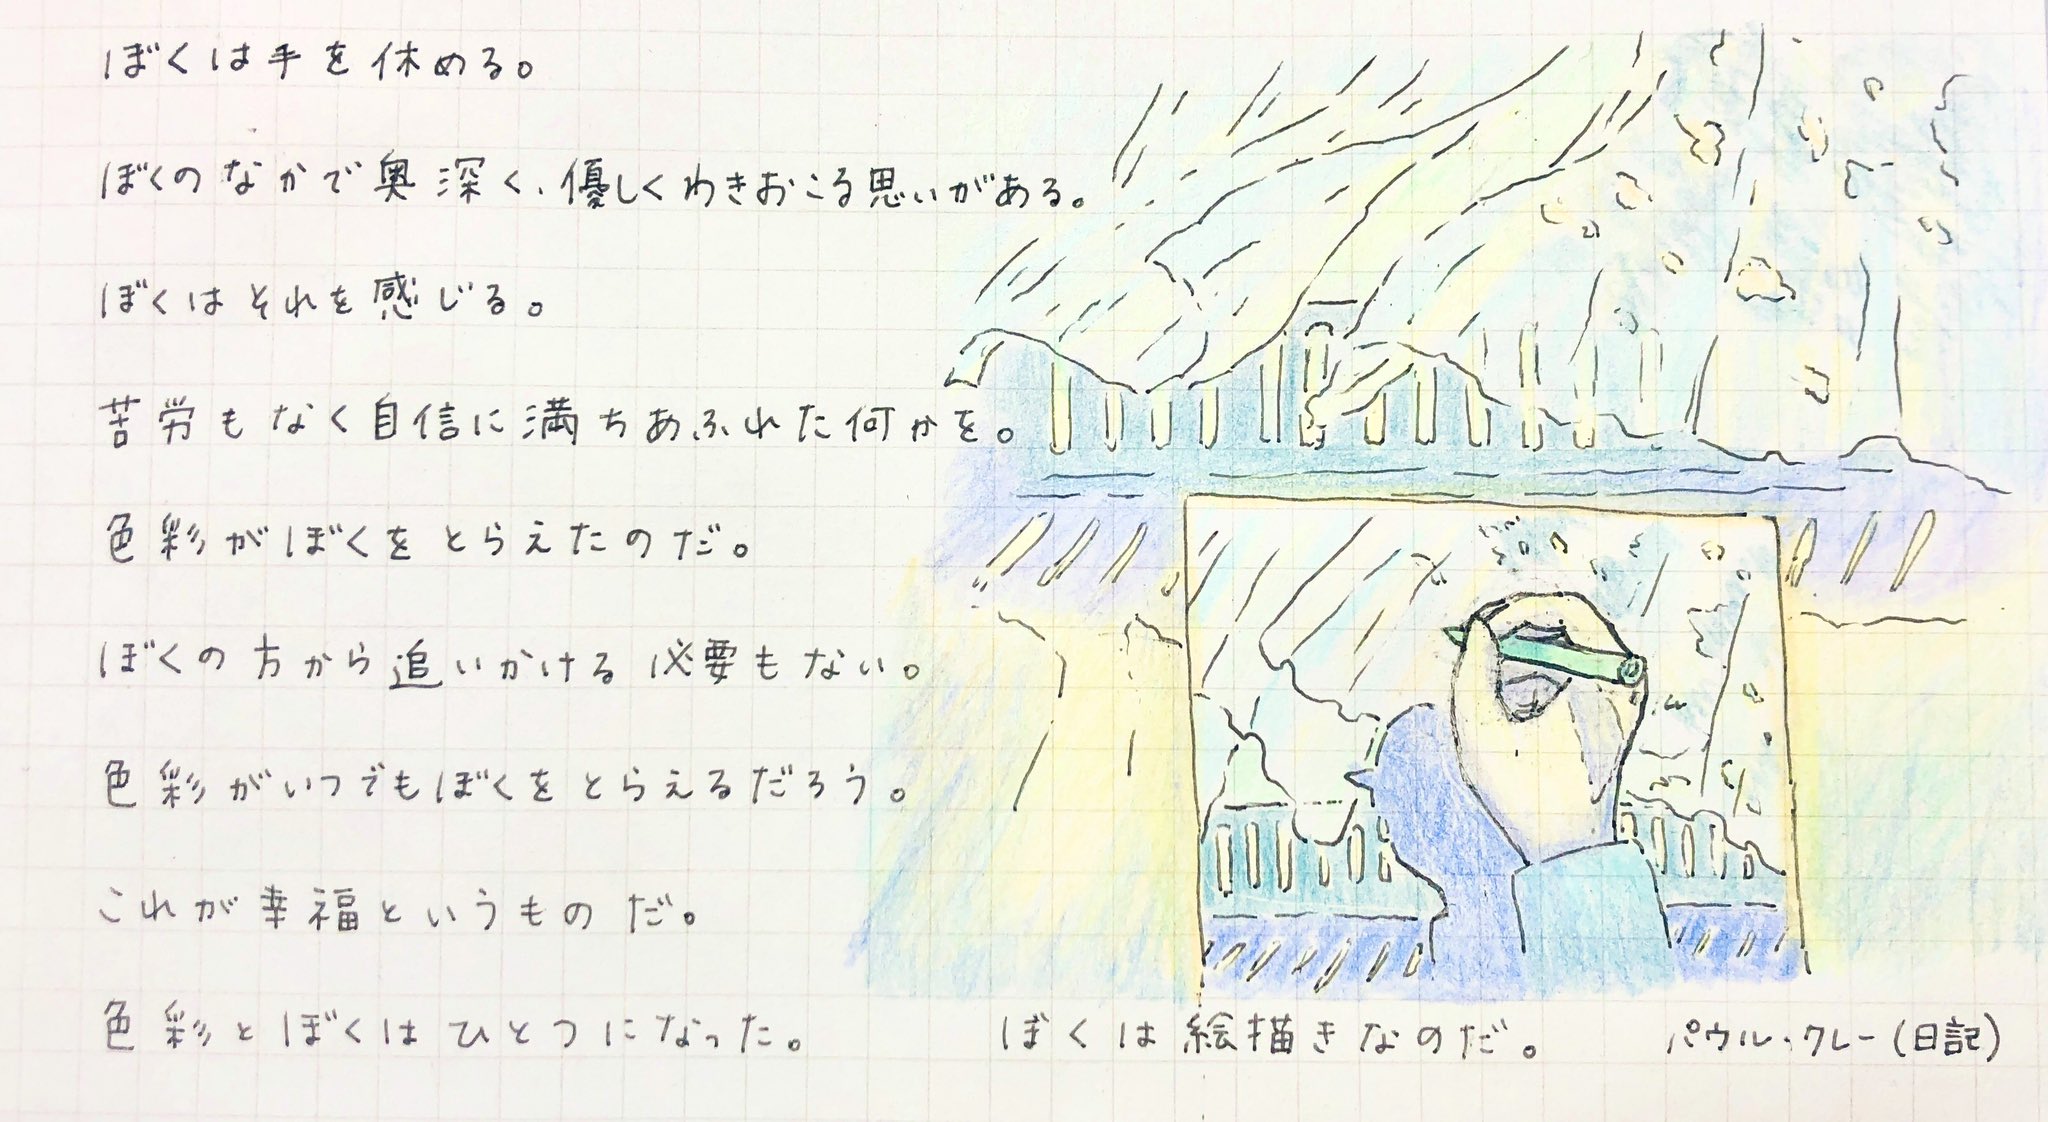 ぼくは手を休める。
ぼくのなかで奥深く、優しくわきおこる思いがある。
ぼくはそれを感じる。
苦労もなく自信に満ちあふれた何かを。
色彩がぼくをとらえたのだ。
ぼくの方から追いかける必要もない。
色彩がいつでもぼくをとらえるだろう。
これが幸福というものだ。
色彩とぼくはひとつになった。 ぼくは絵描きなのだ。 パウル・クレー(日記)